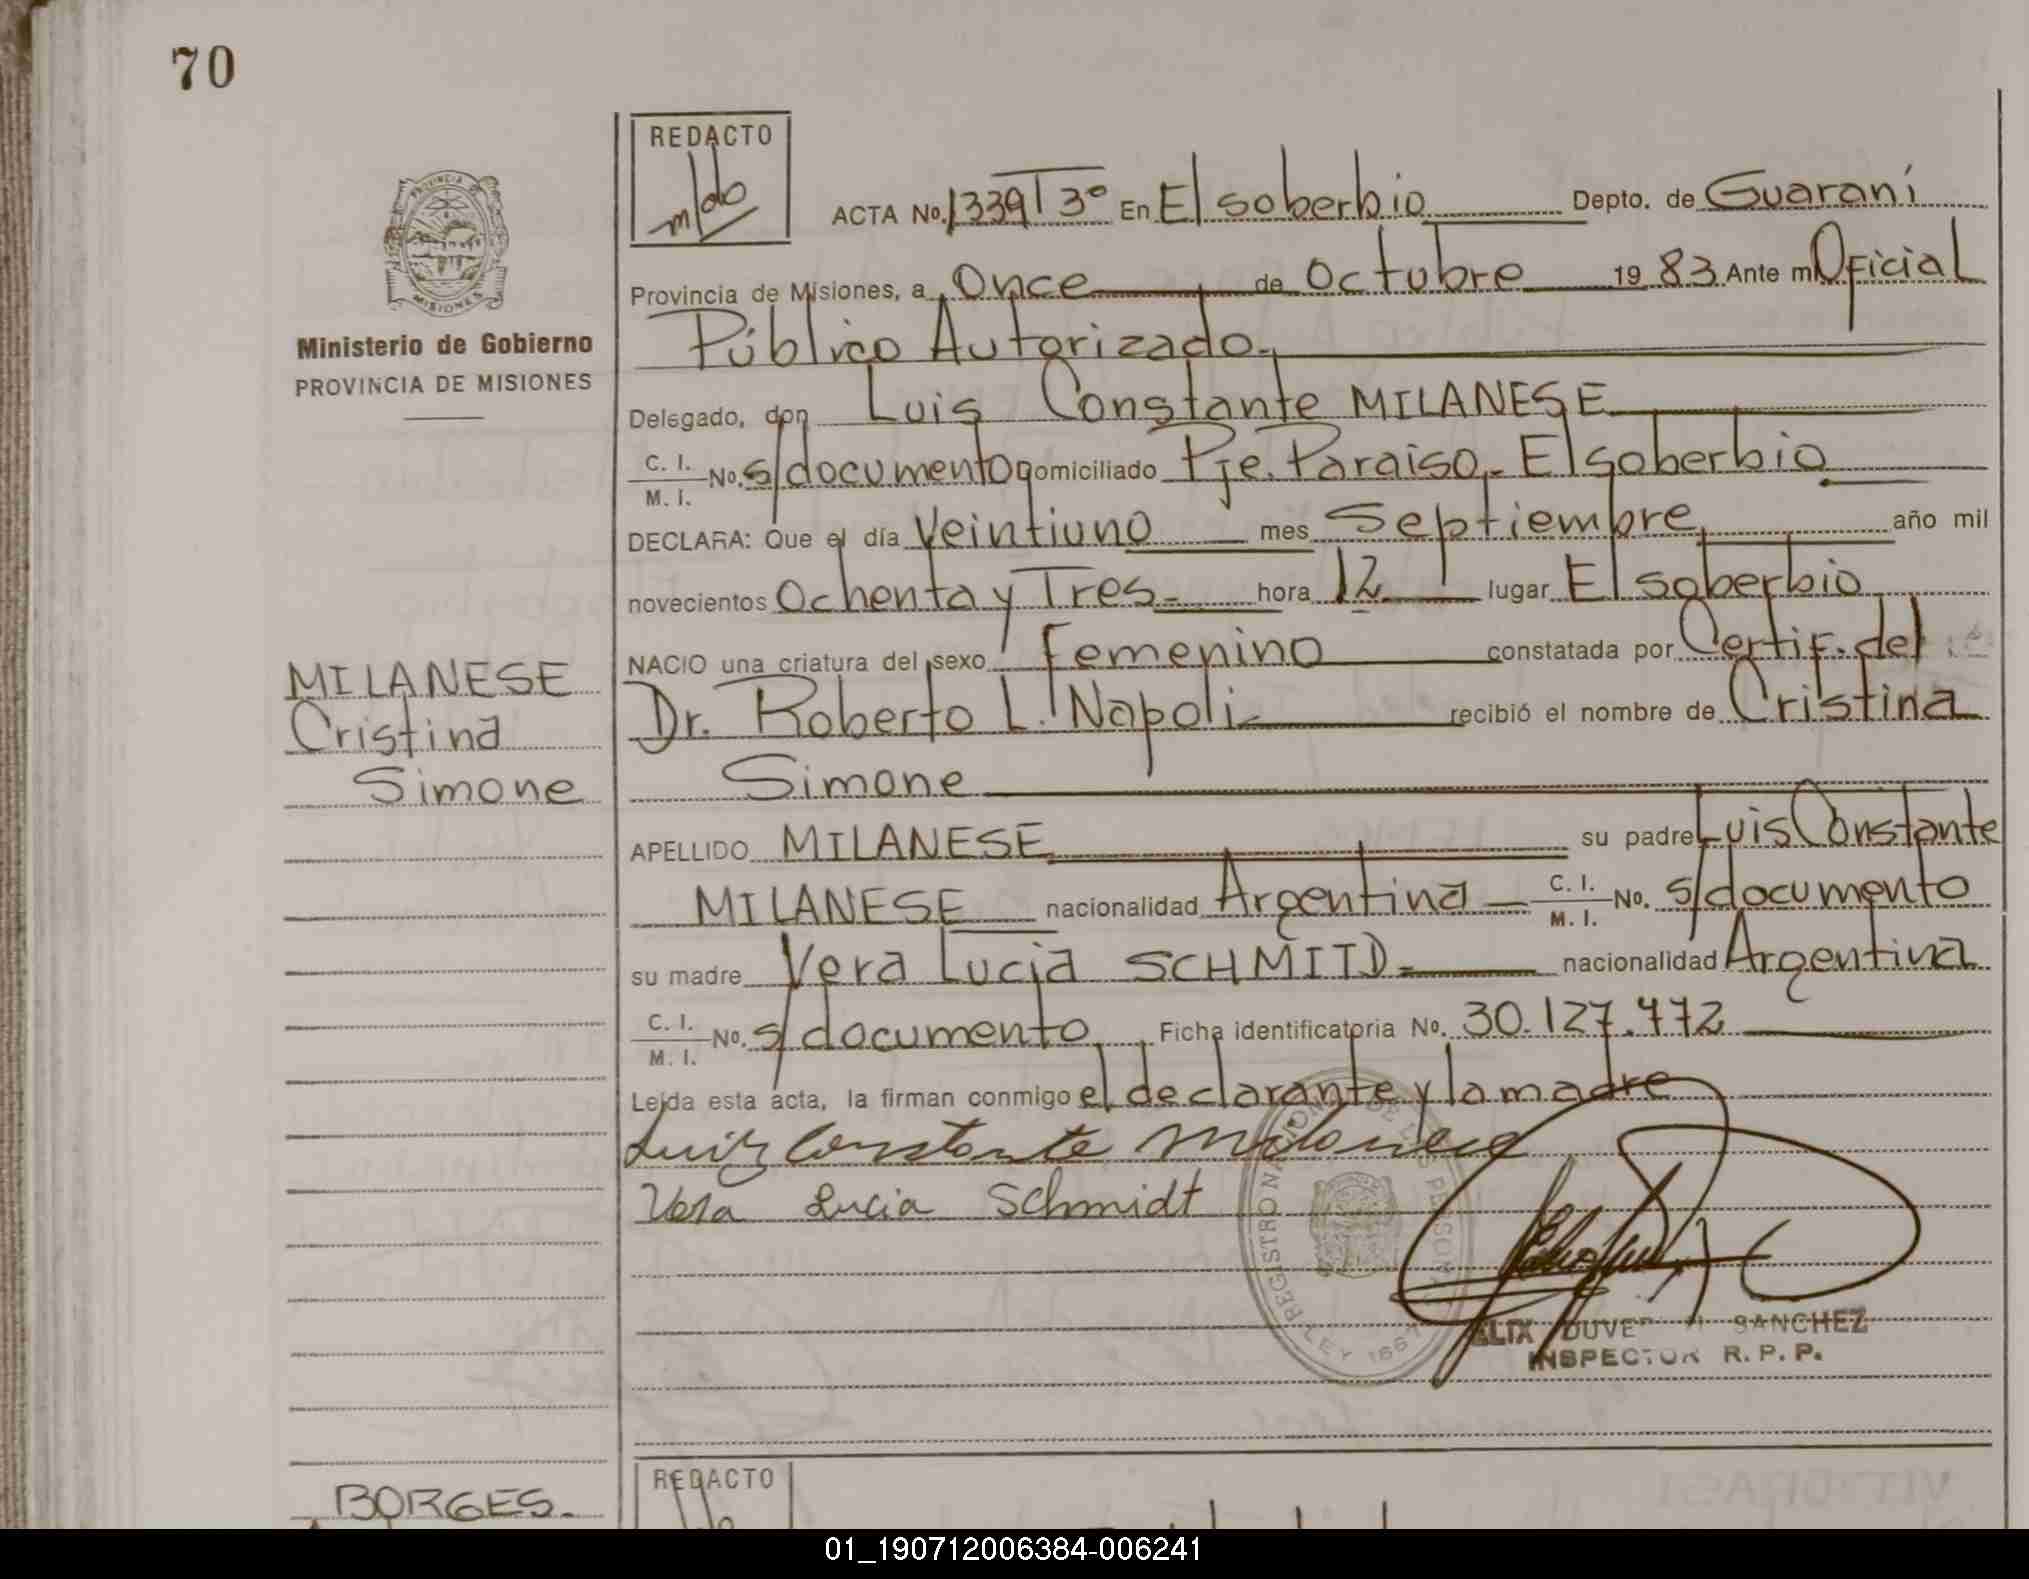 70
REDACTO
ACTA No. 1339 T 3° En El soberbio Depto. de Guaraní
Provincia de Misiones, a Once de Octubre 19 83 Ante mí Oficial
Público Autorizado.
Ministerio de Gobierno
PROVINCIA DE MISIONES
Delegado, don Luis Constante MILANESE
C. I.
M. I. No. s/documento domiciliado Pje. Paraiso. El soberbio
DECLARA: Que el día Veintiuno mes Septiembre año mil
novecientos Ochenta y Tres hora 12 lugar El soberbio
NACIO una criatura del sexo femenino constatada por Certif. del
Dr. Roberto L. Napoli recibió el nombre de Cristina
Simone
MILANESE
Cristina
Simone
APELLIDO MILANESE su padre Luis Constante
MILANESE nacionalidad Argentina C. I.
M. I. No. s/documento
su madre Vera Lucia SCHMITD nacionalidad Argentina
C. I.
M. I. No. s/documento Ficha identificatoria No. 30.127.472
Leída esta acta, la firman conmigo el declarante y la madre
Luiz Constante Milanese
Vera Lucia Schmidt
SANCHEZ
INSPECTOR R. P. P.
BORGES.
REDACTO
01_190712006384-006241